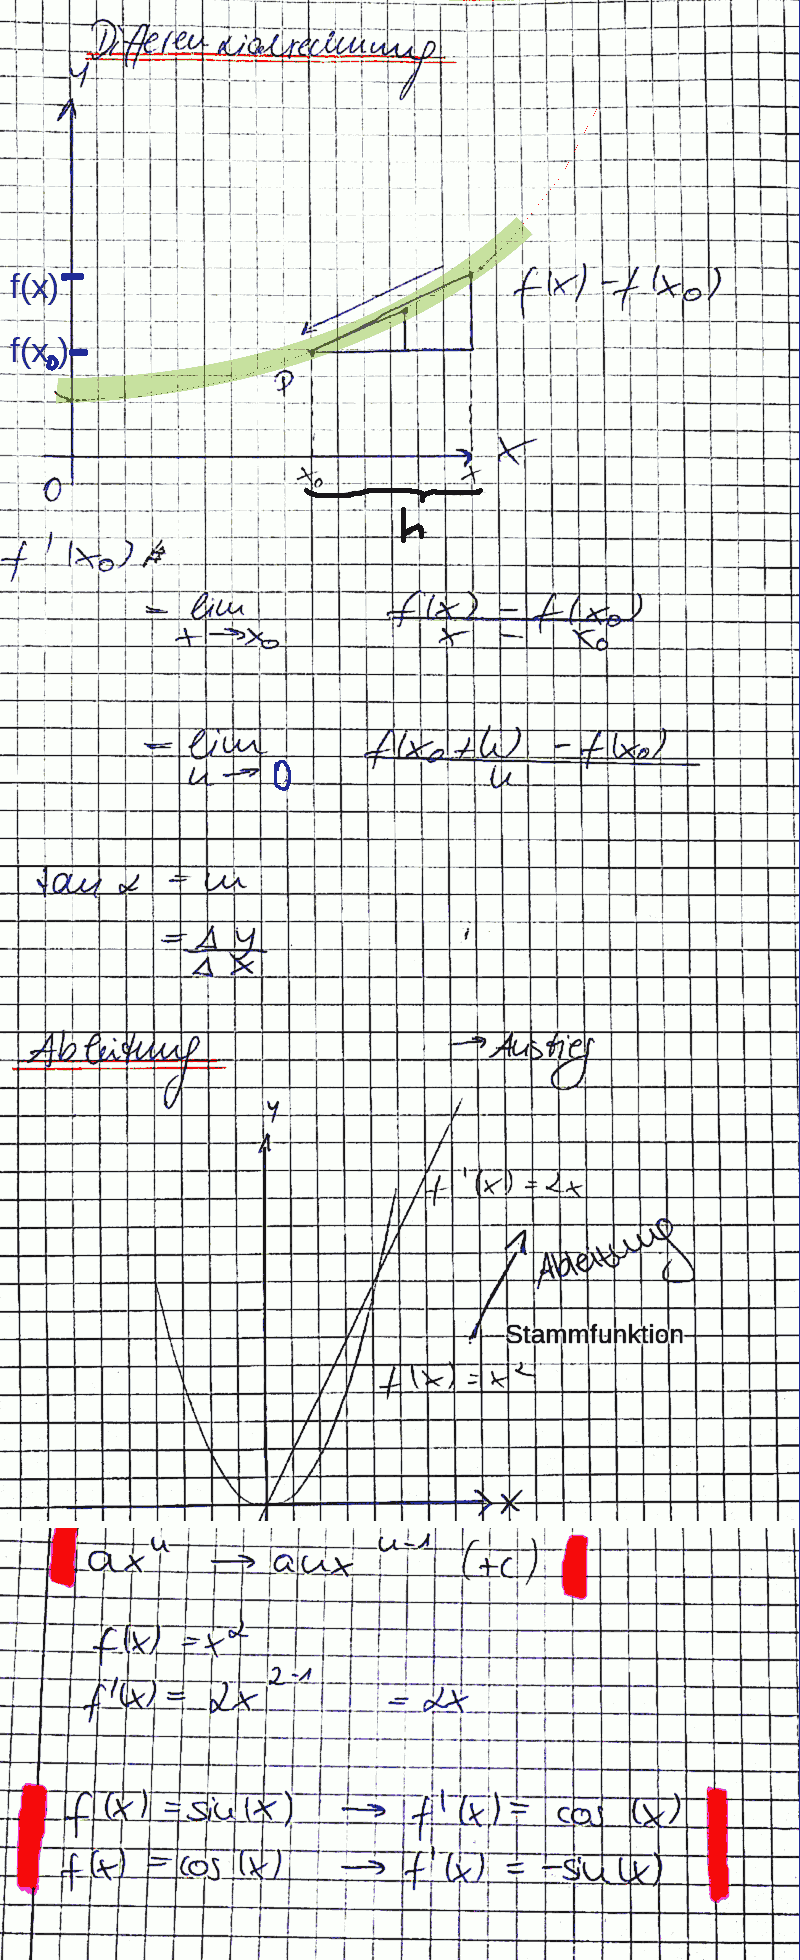 Differenzialrechnung
y
f(x)
f(x) - f(x₀)
f(x₀)
P
X
0
x₀ x
h
f'(x₀)
= lim x→x₀ f(x) - f(x₀) / x - x₀
= lim h→0 f(x₀+h) - f(x₀) / h
tan α = m
= Δ y / Δ x
Ableitung → Anstieg
y
f'(x) = 2x
Ableitung
Stammfunktion
f(x) = x²
X
axⁿ → anxⁿ⁻¹ (+c)
f(x) = x²
f'(x) = 2x²⁻¹ = 2x
f(x) = sin(x) → f'(x) = cos(x)
f(x) = cos(x) → f'(x) = -sin(x)